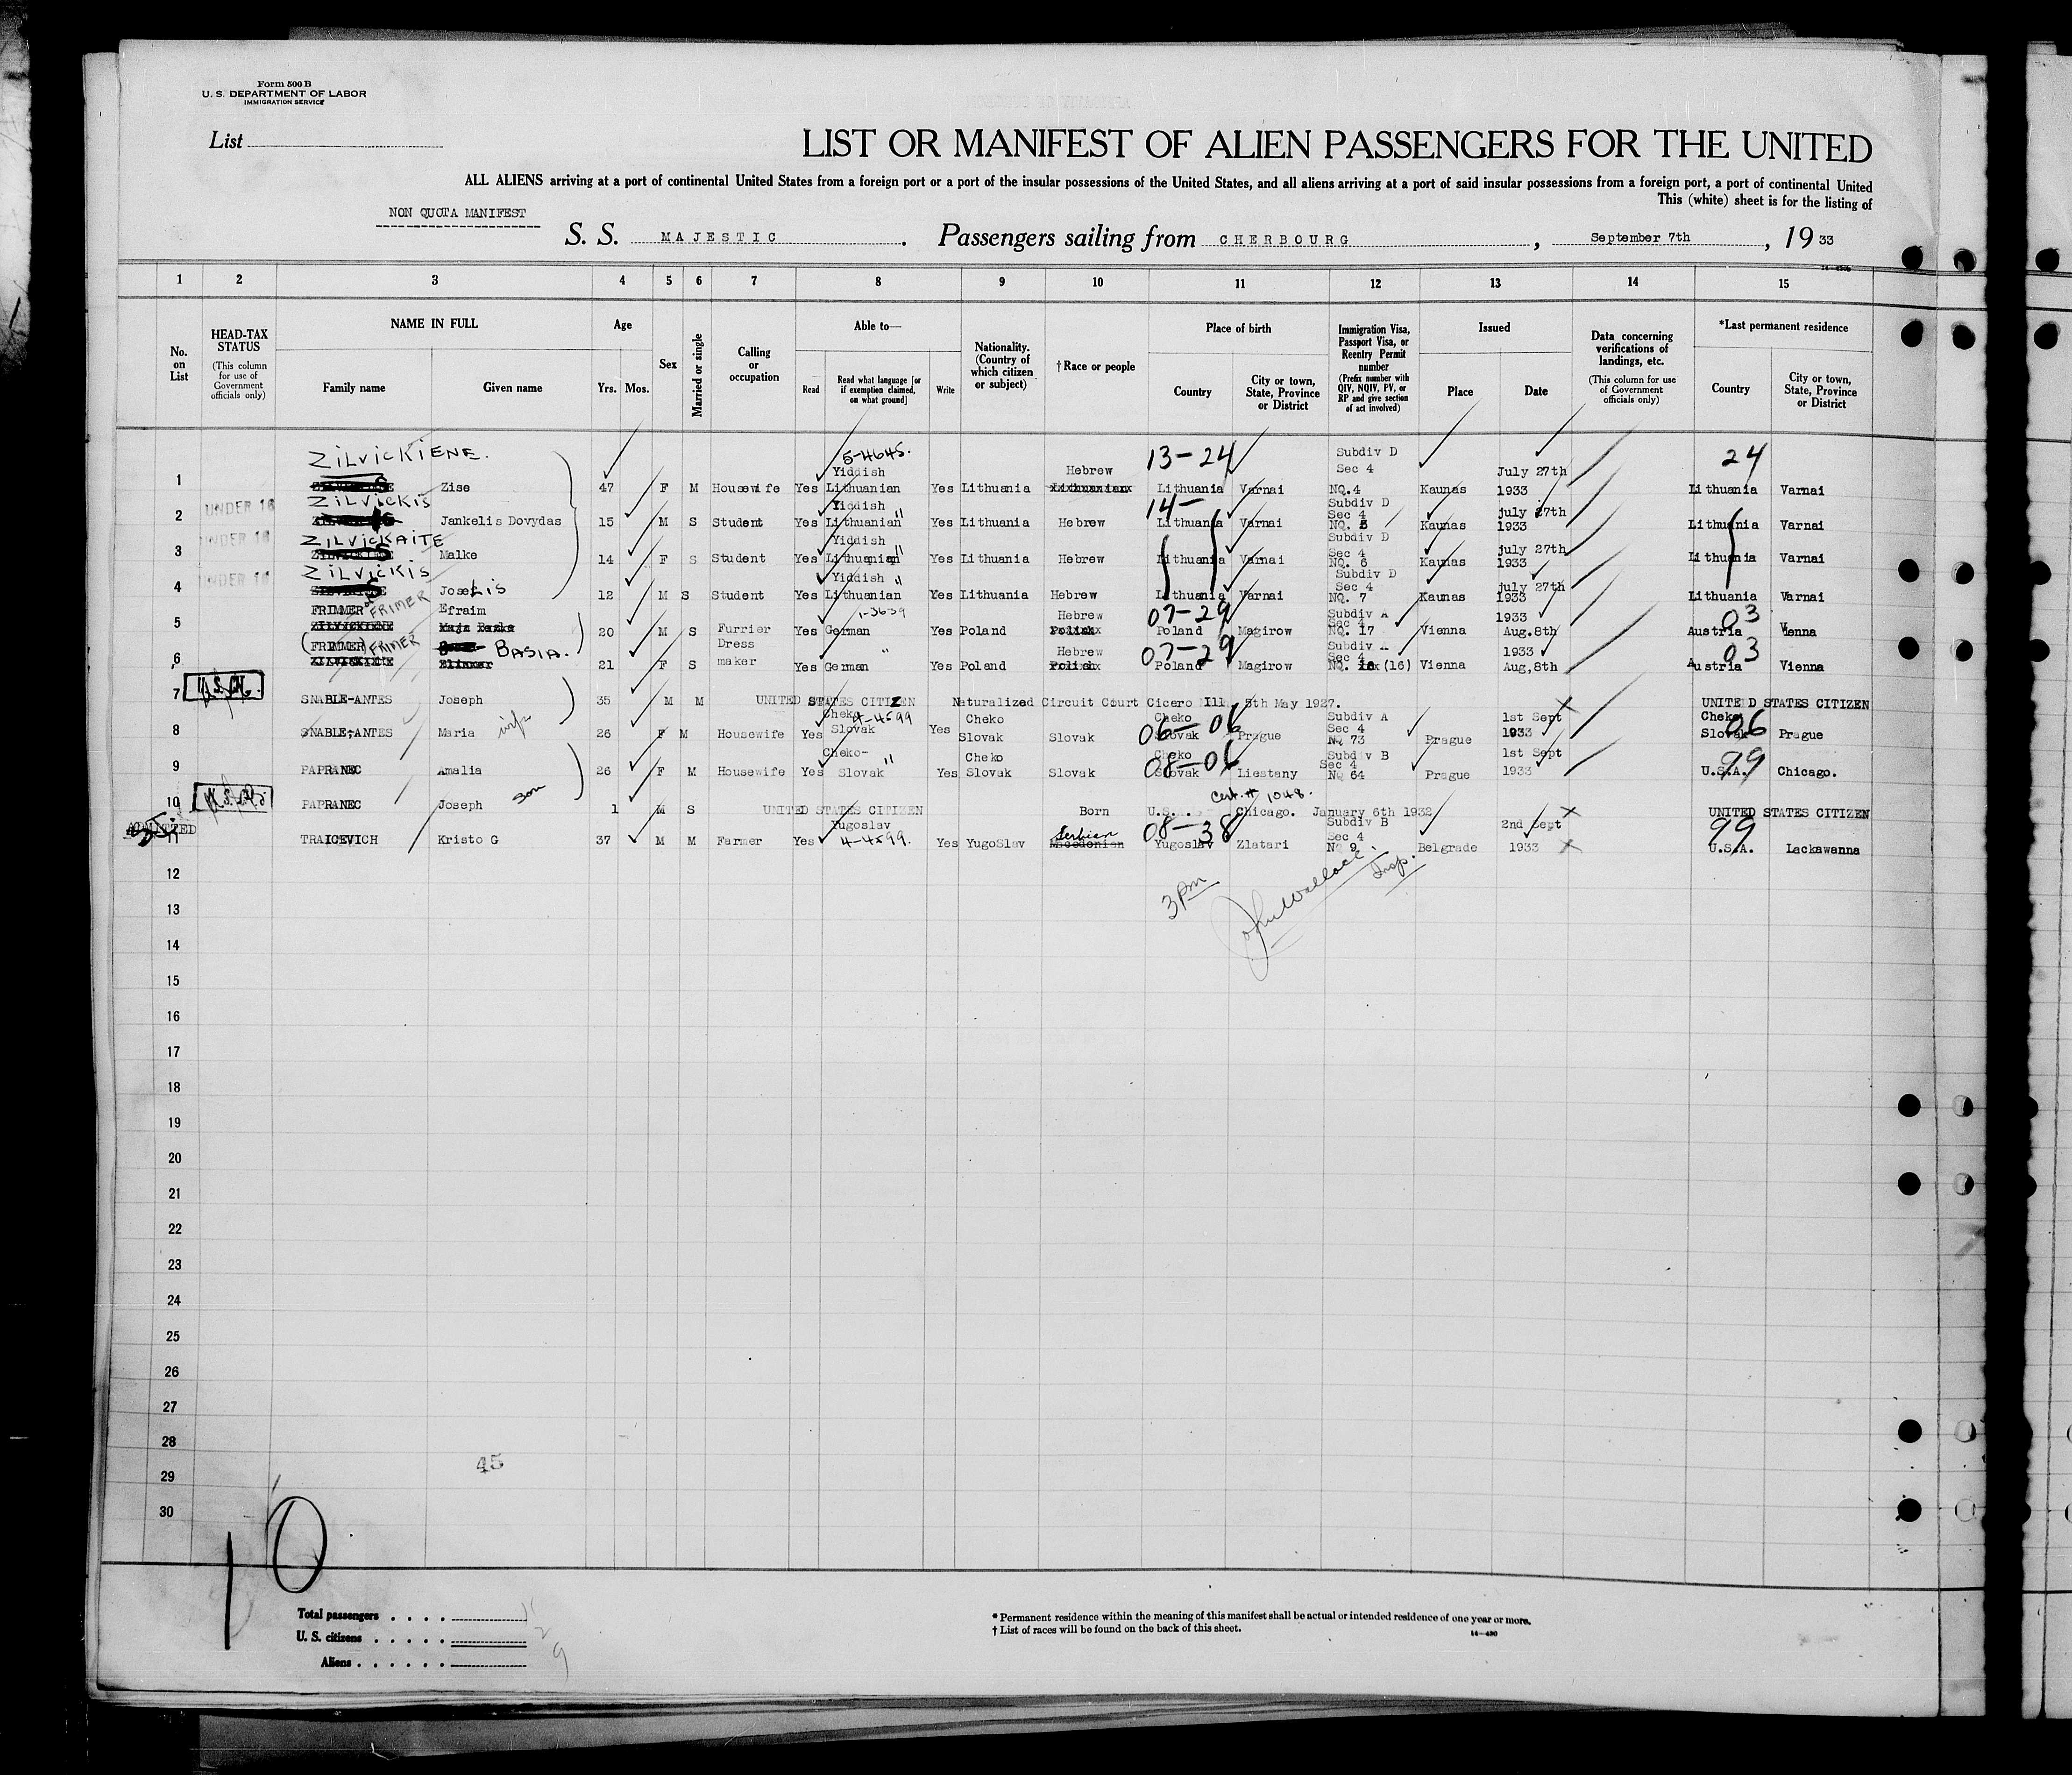 Form 500 B
U. S. DEPARTMENT OF LABOR
IMMIGRATION SERVICE
List
LIST OR MANIFEST OF ALIEN PASSENGERS FOR THE UNITED
ALL ALIENS arriving at a port of continental United States from a foreign port or a port of the insular possessions of the United States, and all aliens arriving at a port of said insular possessions from a foreign port, a port of continental United
This (white) sheet is for the listing of
NON QUOTA MANIFEST
S. S. MAJESTIC . Passengers sailing from CHERBOURG , September 7th , 19 33
1 2 3 4 5 6 7 8 9 10 11 12 13 14 15
No. on List
HEAD-TAX STATUS
(This column for use of Government officials only)
NAME IN FULL
Family name Given name
Age
Yrs. Mos.
Sex
Married or single
Calling or occupation
Able to—
Read
Read what language [or if exemption claimed, on what ground]
Write
Nationality. (Country of which citizen or subject)
†Race or people
Place of birth
Country
City or town, State, Province or District
Immigration Visa, Passport Visa, or Reentry Permit number
(Prefix number with QIV, NQIV, PV, or RP and give section of act involved)
Issued
Place Date
Data concerning verifications of landings, etc.
(This column for use of Government officials only)
*Last permanent residence
Country
City or town, State, Province or District
ZILVICKIENE. 5-4645. 13-24 Subdiv D 24
Yiddish Hebrew Sec 4 July 27th
1 Zise 47 F M Housewife Yes Lithuanian Yes Lithuania Lithuania Varnai NQ.4 Kaunas 1933 Lithuania Varnai
UNDER 16 ZILVICKIS Yiddish 14- Subdiv D
Sec 4 july 27th
2 Jankelis Dovydas 15 M S Student Yes Lithuanian " Yes Lithuania Hebrew Lithuania Varnai NQ. 5 Kaunas 1933 Lithuania Varnai
UNDER 16 ZILVICKAITE Yiddish Subdiv D
Sec 4 july 27th
3 Malke 14 F S Student Yes Lithuanian " Yes Lithuania Hebrew Lithuania Varnai NQ. 6 Kaunas 1933 Lithuania Varnai
UNDER 16 ZILVICKIS Yiddish " Subdiv D
Sec 4 july 27th
4 JoseLIS 12 M S Student Yes Lithuanian Yes Lithuania Hebrew Lithuania Varnai NQ. 7 Kaunas 1933 Lithuania Varnai
FRIMMER FRIMER Efraim 1-3639 Hebrew 07-29 Subdiv A 1933 03
5 ZILVICKIENE 20 M S Furrier Yes German Yes Poland Polish Poland Magirow Sec 4 NQ. 17 Vienna Aug.8th Austria Vienna
(FRIMMER) FRIMER BASIA. Dress " Hebrew 07-29 Subdiv A 1933 03
6 ZILVICKIENE 21 F S maker Yes German Yes Poland Polish Poland Magirow Sec 4 NQ. (16) Vienna Aug,8th Austria Vienna
7 SNABLE-ANTES Joseph 35 M M UNITED STATES CITIZEN Naturalized Circuit Court Cicero Ill. 5th May 1927. UNITED STATES CITIZEN
wife Cheko 4-4599 Cheko Cheko 06-06 Subdiv A 1st Sept Cheko 06
8 SNABLE-ANTES Maria 26 F M Housewife Yes Slovak Yes Slovak Slovak Slovak Prague Sec 4 NQ 73 Prague 1933 Slovak Prague
Cheko- " Cheko Cheko 08-06 Subdiv B 1st Sept 99
9 PAPRANEC Amalia 26 F M Housewife Yes Slovak Yes Slovak Slovak Slovak Liestany Sec 4 NQ 64 Prague 1933 U.S.A. Chicago.
son Cert.# 1048.
10 PAPRANEC Joseph 1 M S UNITED STATES CITIZEN Born U.S. Chicago. January 6th 1932 UNITED STATES CITIZEN
ADMITTED Yugoslav Serbian 08-38 Subdiv B 2nd Sept 99
11 TRAICEVICH Kristo G 37 M M Farmer Yes 4-4599. Yes YugoSlav Macedonian Yugoslav Zlatari Sec 4 NQ 9 Belgrade 1933 U.S.A. Lackawanna
12
3 pm John Wallace. Insp.
13
14
15
16
17
18
19
20
21
22
23
24
25
26
27
28
45
29
30
10
Total passengers . . . . 11
U. S. citizens . . . . . 2
Aliens . . . . . . 9
* Permanent residence within the meaning of this manifest shall be actual or intended residence of one year or more.
† List of races will be found on the back of this sheet.
14—430